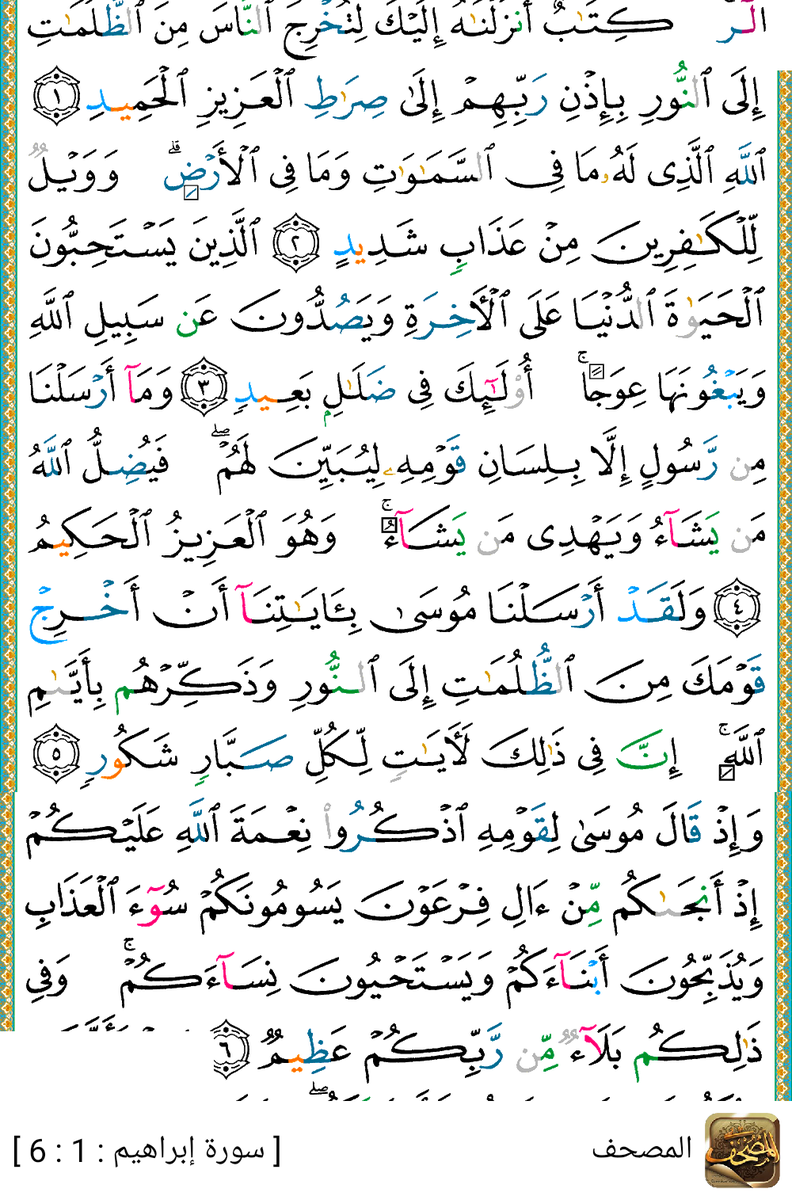 الٓرۚ كِتَٰبٌ أَنزَلْنَٰهُ إِلَيْكَ لِتُخْرِجَ ٱلنَّاسَ مِنَ ٱلظُّلُمَٰتِ
إِلَى ٱلنُّورِ بِإِذْنِ رَبِّهِمْ إِلَىٰ صِرَٰطِ ٱلْعَزِيزِ ٱلْحَمِيدِ ١
ٱللَّهِ ٱلَّذِى لَهُۥ مَا فِى ٱلسَّمَٰوَٰتِ وَمَا فِى ٱلْأَرْضِ ۗ وَوَيْلٌ
لِّلْكَٰفِرِينَ مِنْ عَذَابٍ شَدِيدٍ ٢ ٱلَّذِينَ يَسْتَحِبُّونَ
ٱلْحَيَوٰةَ ٱلدُّنْيَا عَلَى ٱلْأَخِرَةِ وَيَصُدُّونَ عَن سَبِيلِ ٱللَّهِ
وَيَبْغُونَهَا عِوَجًا ۚ أُو۟لَٰٓئِكَ فِى ضَلَٰلٍۭ بَعِيدٍ ٣ وَمَآ أَرْسَلْنَا
مِن رَّسُولٍ إِلَّا بِلِسَانِ قَوْمِهِۦ لِيُبَيِّنَ لَهُمْ ۖ فَيُضِلُّ ٱللَّهُ
مَن يَشَآءُ وَيَهْدِى مَن يَشَآءُ ۚ وَهُوَ ٱلْعَزِيزُ ٱلْحَكِيمُ
٤ وَلَقَدْ أَرْسَلْنَا مُوسَىٰ بِـَٔايَٰتِنَآ أَنْ أَخْرِجْ
قَوْمَكَ مِنَ ٱلظُّلُمَٰتِ إِلَى ٱلنُّورِ وَذَكِّرْهُم بِأَيَّىٰمِ
ٱللَّهِ ۚ إِنَّ فِى ذَٰلِكَ لَأَيَٰتٍ لِّكُلِّ صَبَّارٍ شَكُورٍ ٥
وَإِذْ قَالَ مُوسَىٰ لِقَوْمِهِ ٱذْكُرُوا۟ نِعْمَةَ ٱللَّهِ عَلَيْكُمْ
إِذْ أَنجَىٰكُم مِّنْ ءَالِ فِرْعَوْنَ يَسُومُونَكُمْ سُوٓءَ ٱلْعَذَابِ
وَيُذَبِّحُونَ أَبْنَآءَكُمْ وَيَسْتَحْيُونَ نِسَآءَكُمْ ۚ وَفِى
ذَٰلِكُم بَلَآءٌ مِّن رَّبِّكُمْ عَظِيمٌ ٦
المصحف
[ سورة إبراهيم : 1 : 6 ]